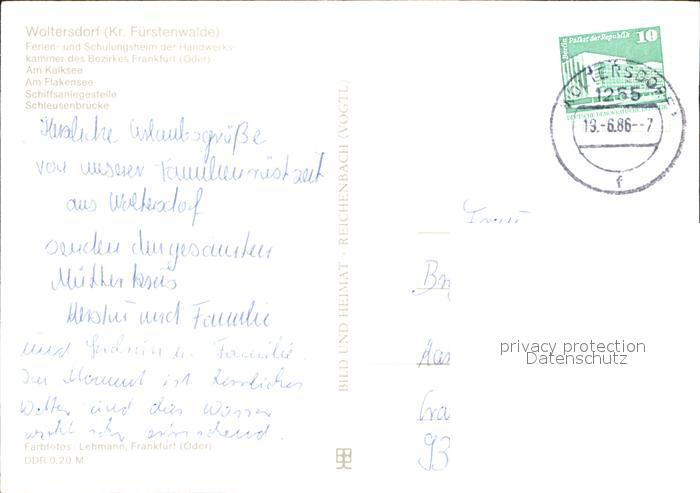 Woltersdorf (Kr. Fürstenwalde)
Ferien- und Schulungsheim der Handwerks-
kammer des Bezirkes Frankfurt (Oder)
Am Kalksee
Am Flakensee
Schiffsanlegestelle
Schleusenbrücke
Herzliche Urlaubsgrüße
von unserer Familienrüstzeit
aus Woltersdorf
senden dem gesamten
Mütterkreis
und Familie
und u. Familie.
Im Moment ist herrliches
Wetter und das Wasser
sehr
Farbfotos: Lehmann, Frankfurt (Oder)
DDR 0,20 M
BILD UND HEIMAT · REICHENBACH (VOGTL)
Berlin Palast der Republik 10
DEUTSCHE DEMOKRATISCHE REPUBLIK
WOLTERSDORF
1255
19.-6.86--7
f
Frau
privacy protection
Datenschutz
93